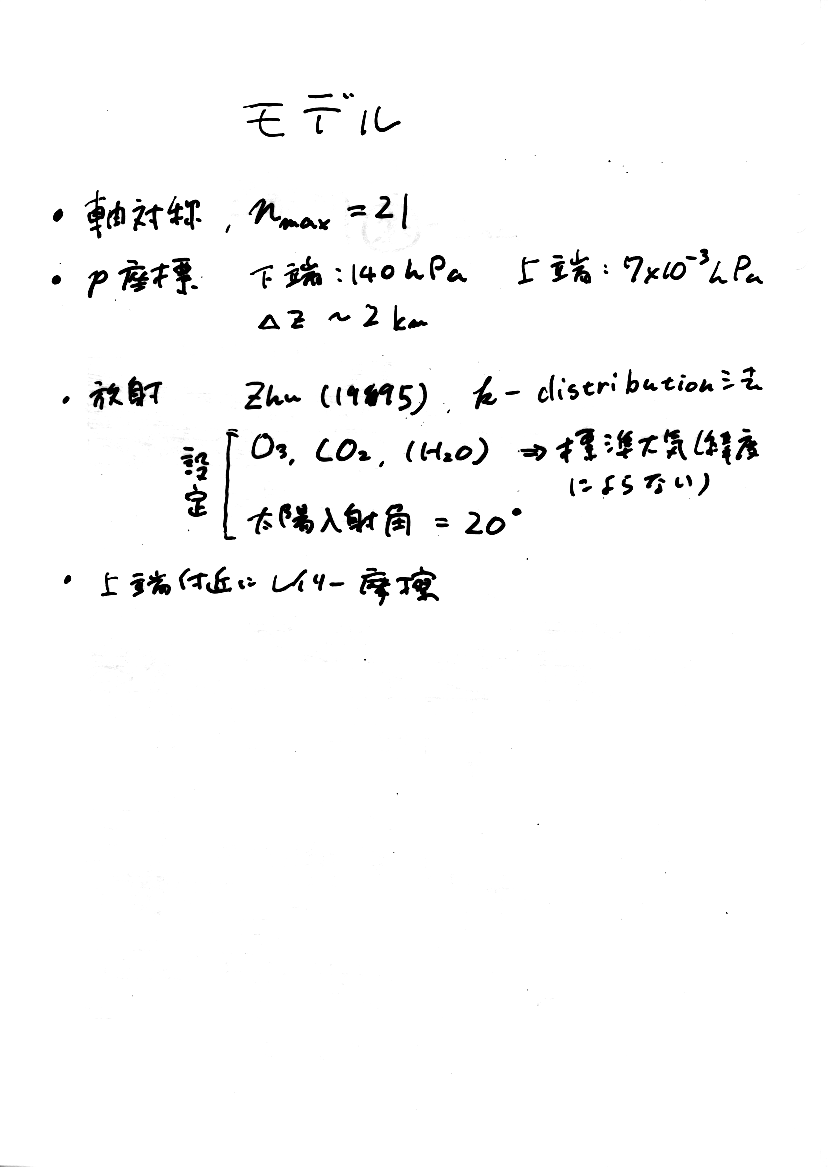 モデル
・軸対称, nmax = 21
・p座標 下端:140hPa 上端:7×10⁻³hPa
ΔZ ~ 2km
・放射 Zhu (1995), k-distribution法
設定
O₃, CO₂, (H₂O) ⇒ 標準大気(緯度
によらない)
太陽入射角 = 20°
・上端付近にレイリー摩擦